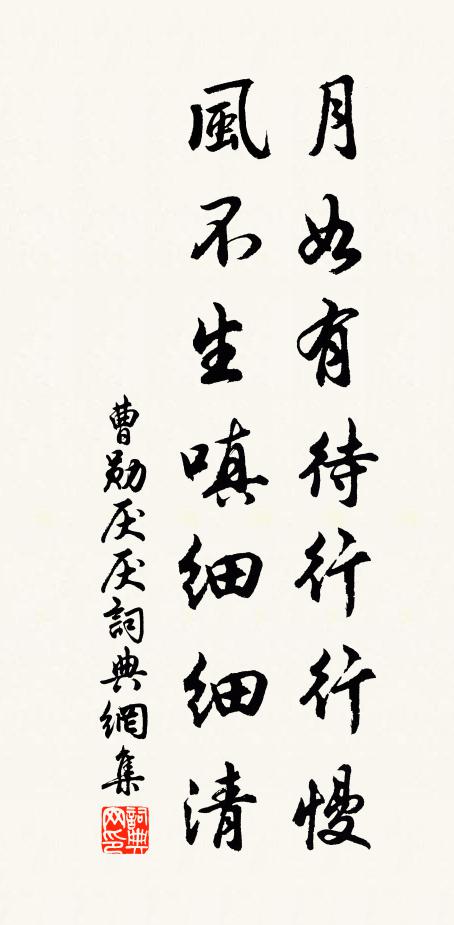 月如有待行行慢
風不生嗔細細清
曹勛厌厌詞典網集
詞典网印